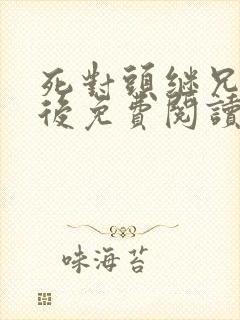 死對頭繼兄
後免費閱讀
味海苔